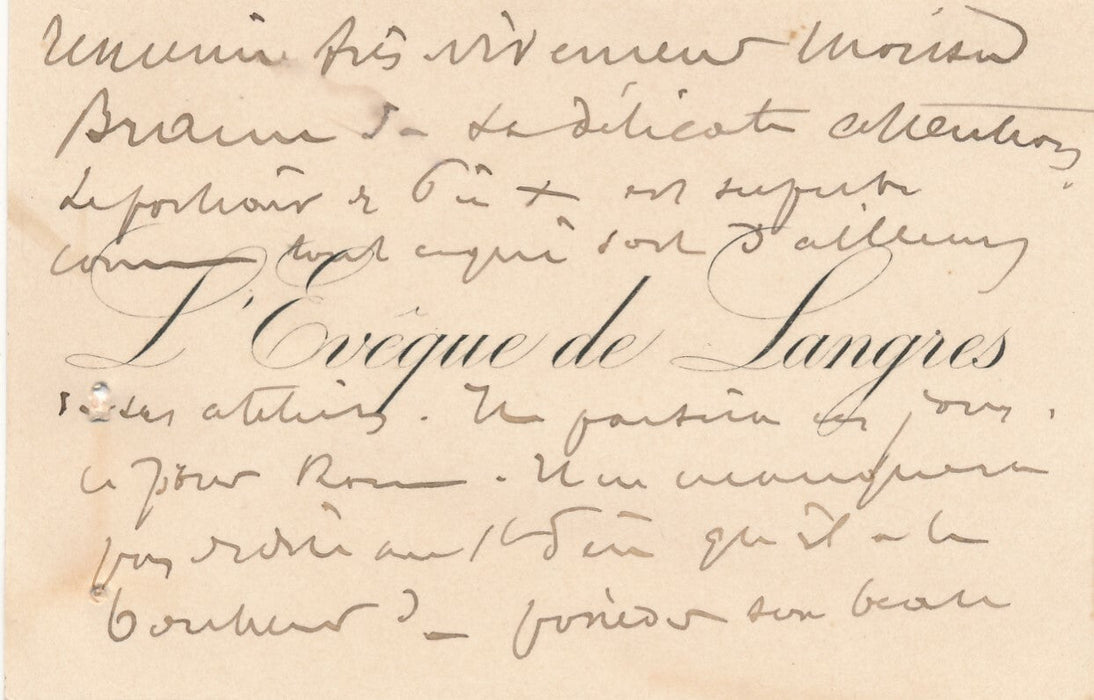 remercie très vivement Monsieur
Braun de sa délicate attention.
Le portrait de Pie X est superbe
comme tout ce qui sort d'ailleurs
L'Evêque de Langres
de ses ateliers. Il partira ces jours
ci pour Rome. Il ne manquera
pas de dire au St Père qu'il a le
bonheur de posséder son beau